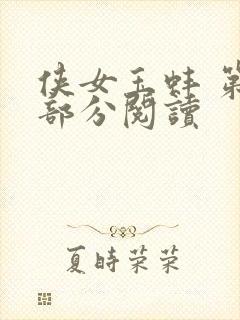 侠女玉蚌 第
部分閱讀
夏時荣荣